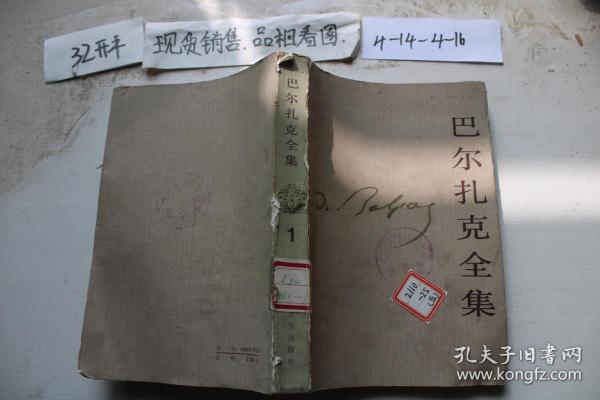 32开平
现货销售.品相看图.
4-14-4-16
巴尔扎克全集
1
巴尔扎克全集
Balzac
2110
-25
(五)
学出版社
孔夫子旧书网
www.kongfz.com